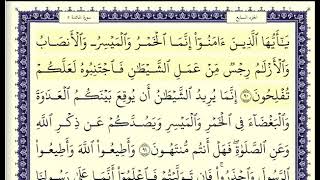 الجزء السابع
سورة المائدة ٥
يَٰٓأَيُّهَا ٱلَّذِينَ ءَامَنُوٓا۟ إِنَّمَا ٱلْخَمْرُ وَٱلْمَيْسِرُ وَٱلْأَنصَابُ
وَٱلْأَزْلَٰمُ رِجْسٌ مِّنْ عَمَلِ ٱلشَّيْطَٰنِ فَٱجْتَنِبُوهُ لَعَلَّكُمْ
تُفْلِحُونَ ۝ إِنَّمَا يُرِيدُ ٱلشَّيْطَٰنُ أَن يُوقِعَ بَيْنَكُمُ ٱلْعَدَٰوَةَ
وَٱلْبَغْضَآءَ فِى ٱلْخَمْرِ وَٱلْمَيْسِرِ وَيَصُدَّكُمْ عَن ذِكْرِ ٱللَّهِ
وَعَنِ ٱلصَّلَوٰةِ فَهَلْ أَنتُم مُّنتَهُونَ ۝ وَأَطِيعُوا۟ ٱللَّهَ وَأَطِيعُوا۟
ٱلرَّسُولَ وَٱحْذَرُوا۟ فَإِن تَوَلَّيْتُمْ فَٱعْلَمُوٓا۟ أَنَّمَا عَلَىٰ رَسُولِنَا